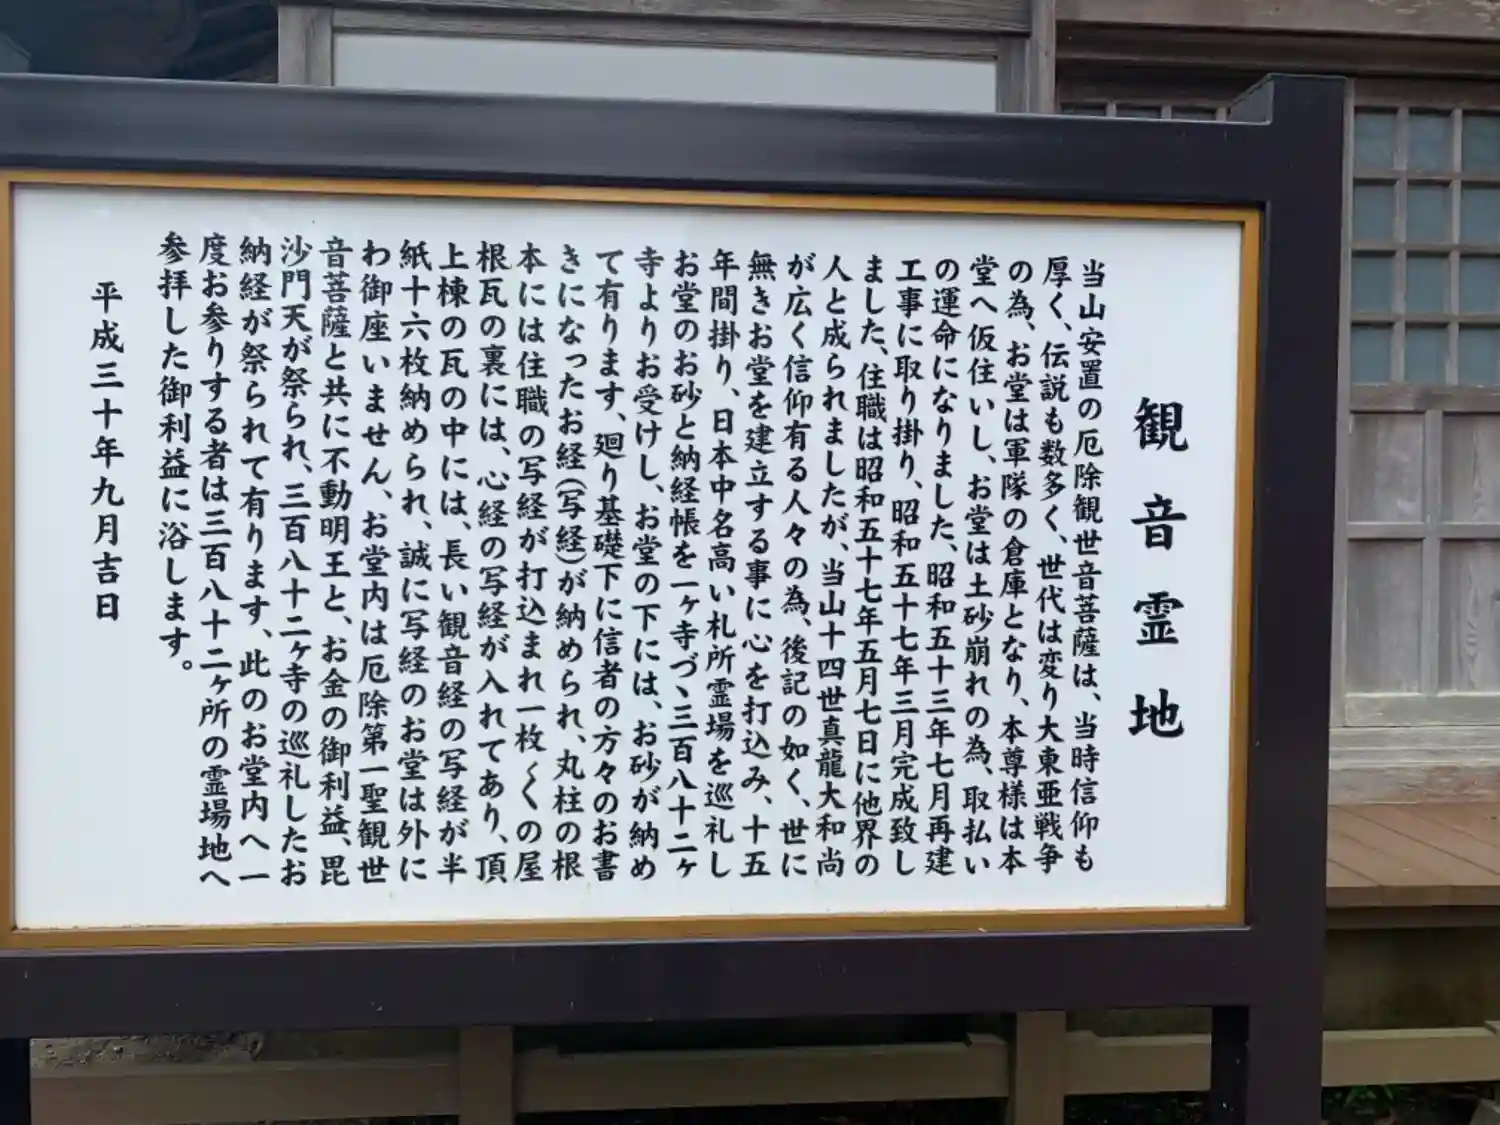 観音霊地
当山安置の厄除観世音菩薩は、当時信仰も
厚く、伝説も数多く、世代は変り大東亜戦争
の為、お堂は軍隊の倉庫となり、本尊様は本
堂へ仮住いし、お堂は土砂崩れの為、取払い
の運命になりました、昭和五十三年七月再建
工事に取り掛り、昭和五十七年三月完成致し
ました、住職は昭和五十七年五月七日に他界の
人と成られましたが、当山十四世真龍大和尚
が広く信仰有る人々の為、後記の如く、世に
無きお堂を建立する事に心を打込み、十五
年間掛り、日本中名高い札所霊場を巡礼し
お堂のお砂と納経帳を一ヶ寺づゝ三百八十二ヶ
寺よりお受けし、お堂の下には、お砂が納め
て有ります、廻り基礎下に信者の方々のお書
きになったお経(写経)が納められ、丸柱の根
本には住職の写経が打込まれ一枚〱の屋
根瓦の裏には、心経の写経が入れてあり、頂
上棟の瓦の中には、長い観音経の写経が半
紙十六枚納められ、誠に写経のお堂は外に
わ御座いません、お堂内は厄除第一聖観世
音菩薩と共に不動明王と、お金の御利益、毘
沙門天が祭られ、三百八十二ヶ寺の巡礼したお
納経が祭られて有ります、此のお堂内へ一
度お参りする者は三百八十二ヶ所の霊場地へ
参拝した御利益に浴します。
平成三十年九月吉日